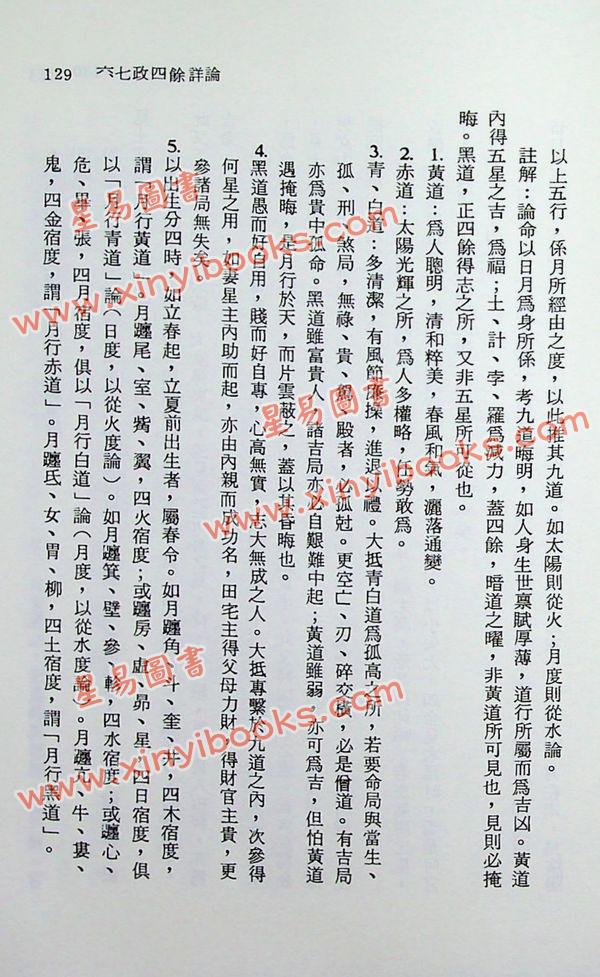 129 六、七政四餘詳論
以上五行，係月所經由之度，以此推其九道。如太陽則從火；月度則從水論。
註解：論命以日月為身所係，考九道晦明，如人身生世禀賦厚薄，道行所屬而為吉凶。黃道
內得五星之吉，為福；土、計、孛、羅為減力，蓋四餘，暗道之曜，非黃道所可見也，見則必掩
晦。黑道，正四餘得志之所，又非五星所可從也。
1. 黃道：為人聰明，清和粹美，春風和氣，灑落通變。
2. 赤道：太陽光輝之所，為人多權略，仕勢敢為。
3. 青、白道：多清潔，有風節雅操，進退以禮。大抵青白道為孤高之所，若要命局與當生、
孤、刑、煞局，無祿、貴、駕、殿者，必孤尅。更空亡、刃、碎交橫，必是僧道。有吉局
亦為貴中孤命。黑道雖富貴人，諸吉局亦必自艱難中起；黃道雖弱。亦可為吉，但怕黃道
遇掩晦，是月行於天，而片雲蔽之，蓋以其昏晦也。
4. 黑道愚而好自用，賤而好自專，心高無實，志大無成之人。大抵專繫於九道之內，次參得
何星之用，如妻星主內助而起，亦由內親而成功名，田宅主得父母力財，得財官主貴，更
參諸局無失矣。
5. 以出生分四時，如立春起，立夏前出生者，屬春令。如月躔角、斗、奎、井，四木宿度，
謂「月行黃道」。月躔尾、室、觜、翼，四火宿度；或躔房、虛、昴、星，四日宿度，俱
以「月行青道」論（日度，以從火度論）。如月躔箕、壁、參、軫，四水宿度；或躔心、
危、畢、張，四月宿度，俱以「月行白道」論（月度，以從水度論）。月躔亢、牛、婁、
鬼，四金宿度，謂「月行赤道」。月躔氐、女、胃、柳，四土宿度，謂「月行黑道」。
星易圖書
www.xinyibooks.com
星易圖書
www.xinyibooks.com
星易圖書
www.xinyibooks.com